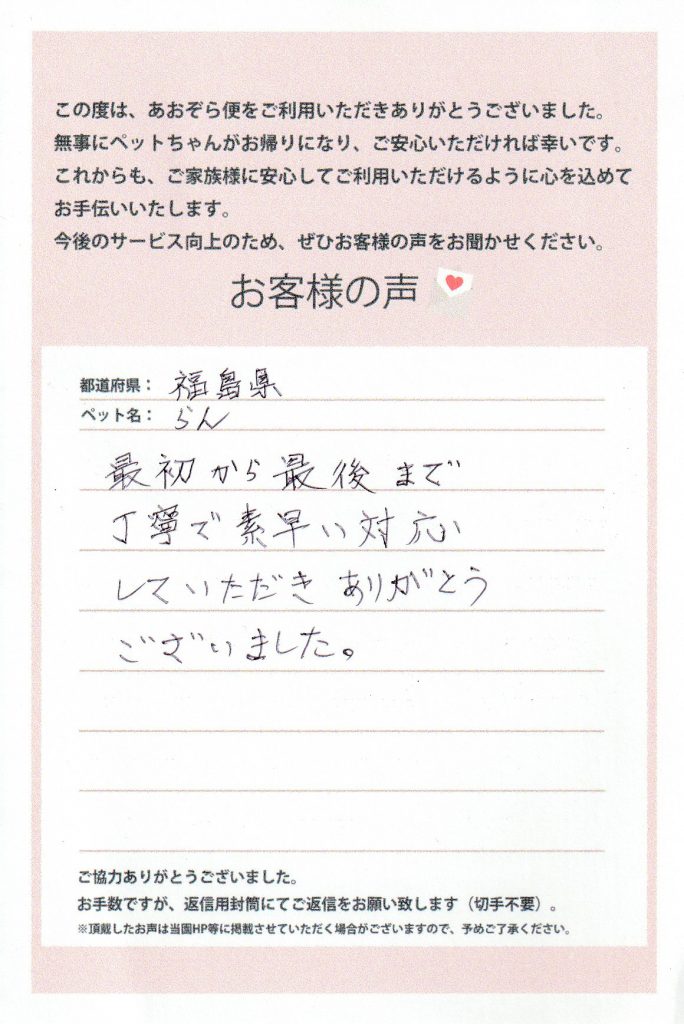 この度は、あおぞら便をご利用いただきありがとうございました。
無事にペットちゃんがお帰りになり、ご安心いただければ幸いです。
これからも、ご家族様に安心してご利用いただけるように心を込めて
お手伝いいたします。
今後のサービス向上のため、ぜひお客様の声をお聞かせください。
お客様の声
都道府県： 福島県
ペット名： らん
最初から最後まで
丁寧で素早い対応
していただきありがとう
ございました。
ご協力ありがとうございました。
お手数ですが、返信用封筒にてご返信をお願い致します（切手不要）。
※頂戴したお声は当園HP等に掲載させていただく場合がございますので、予めご了承ください。